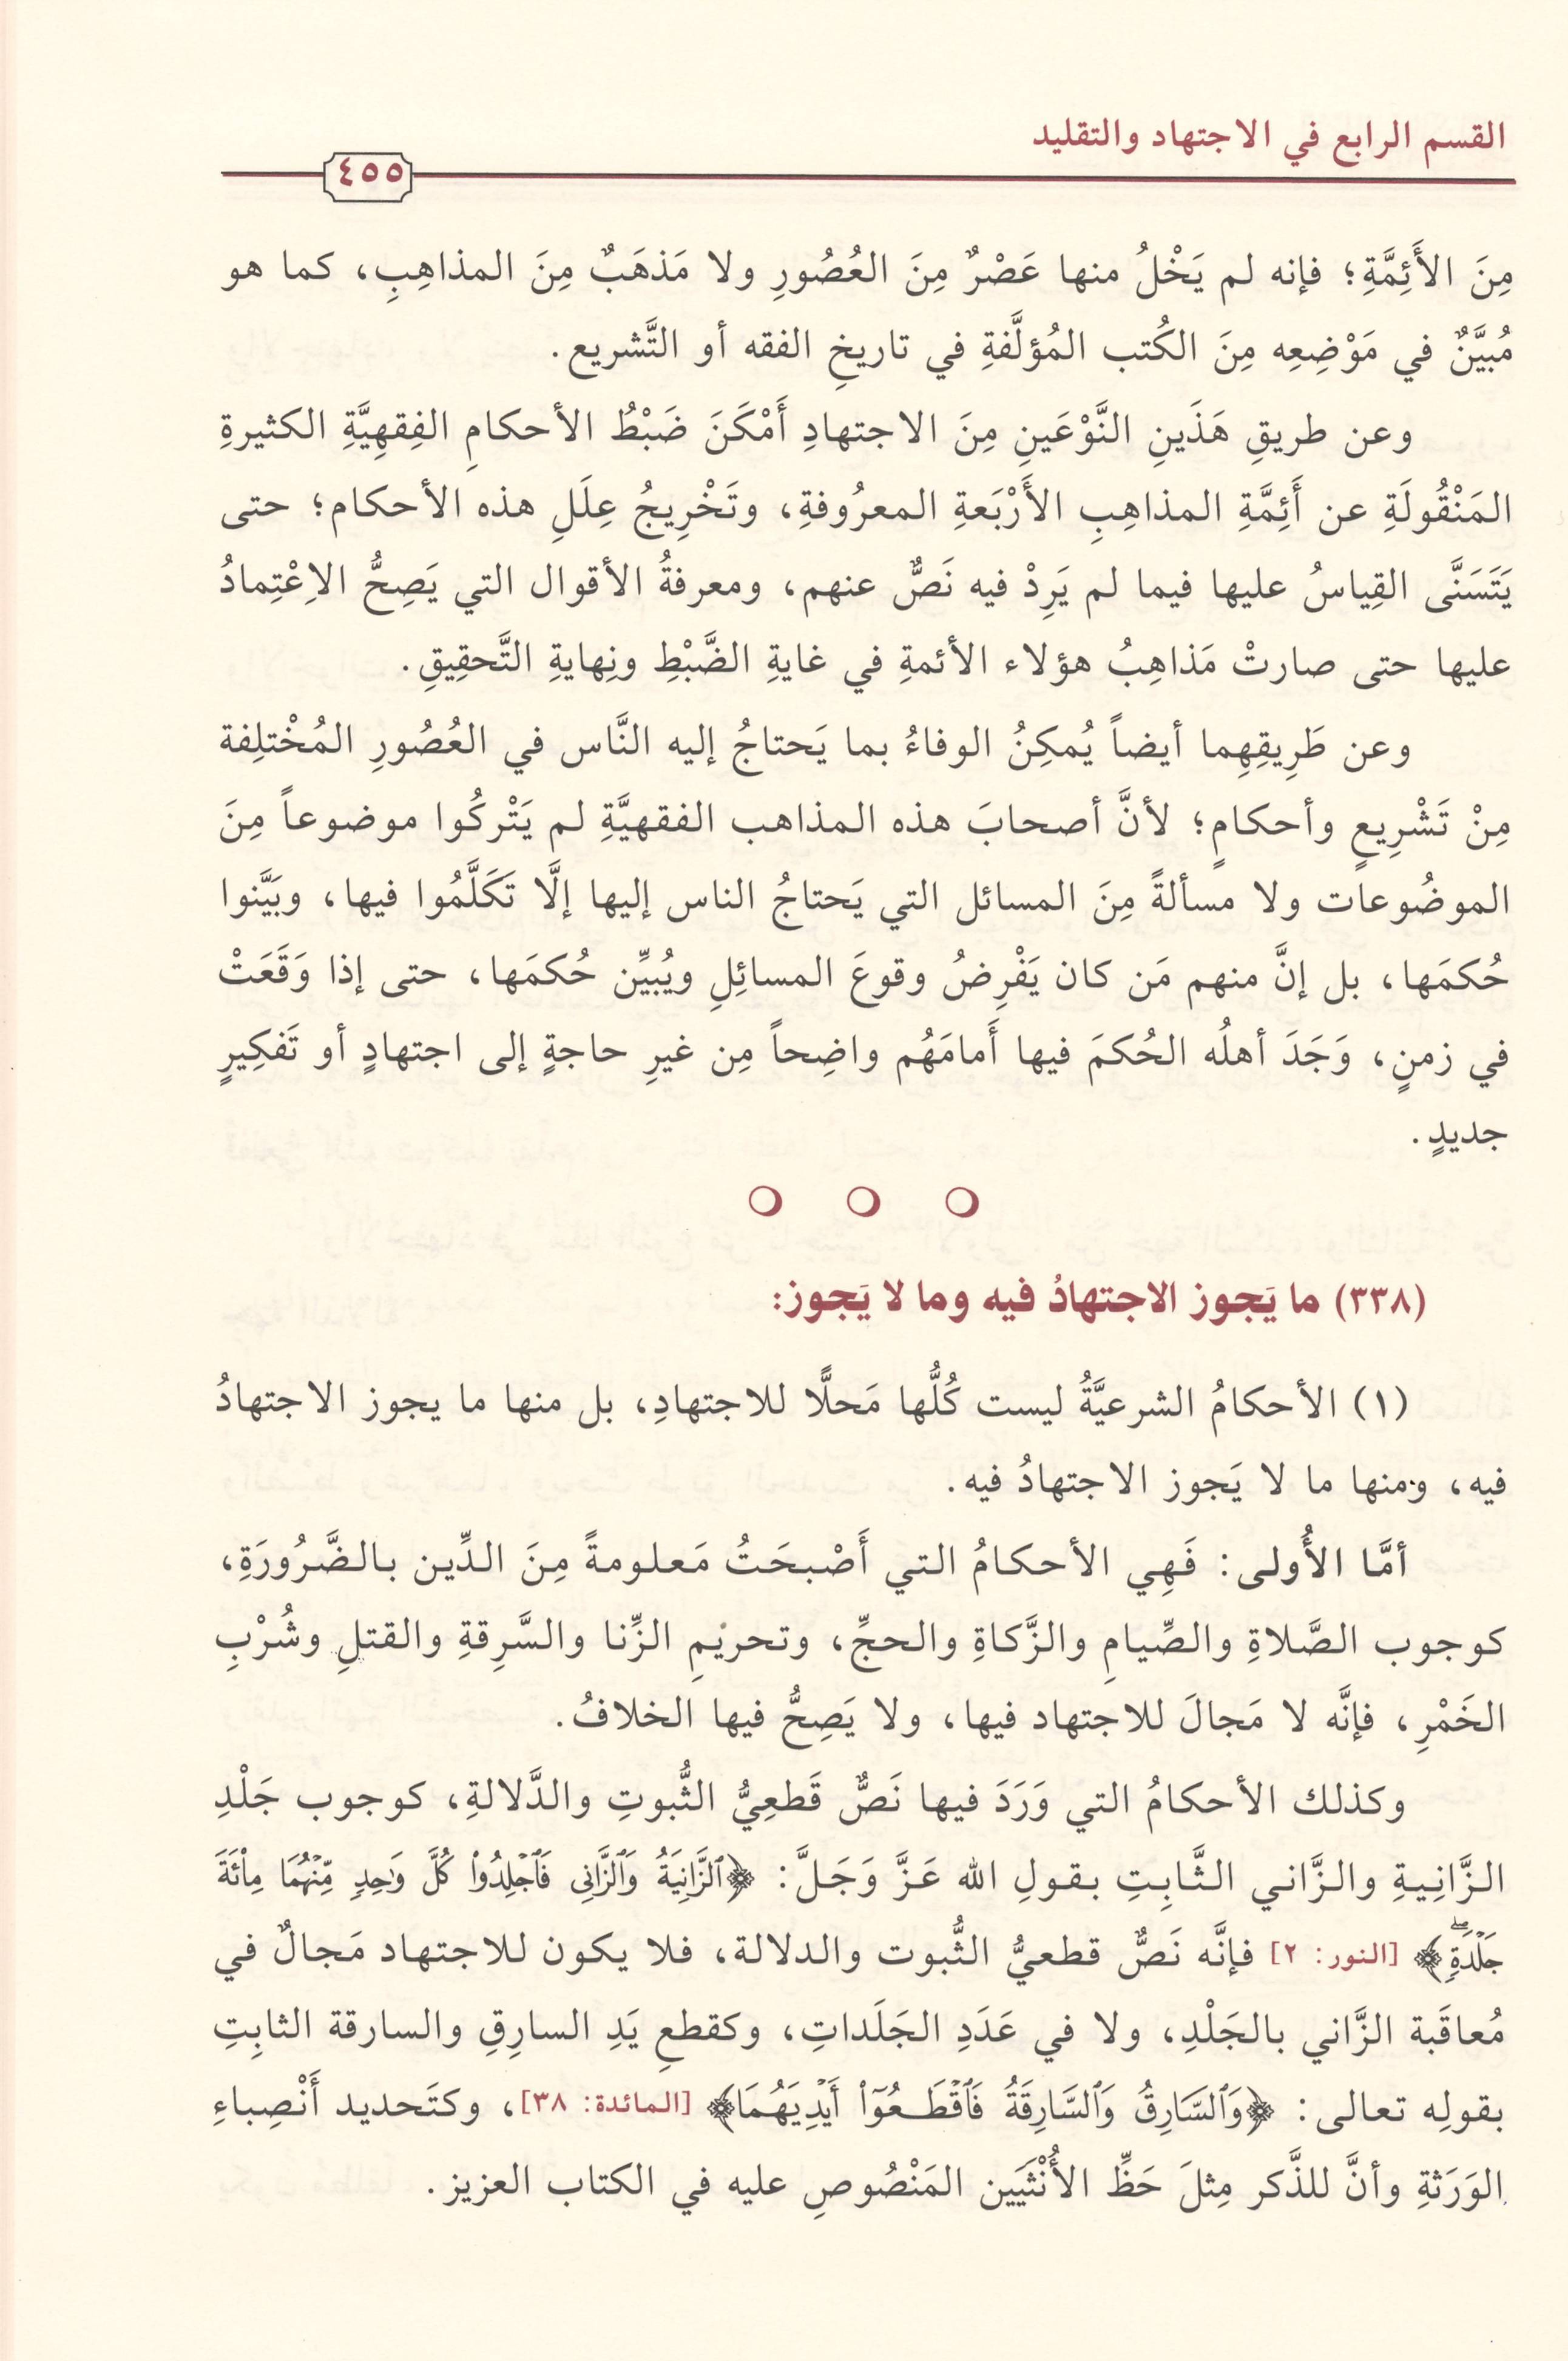 القسم الرابع في الاجتهاد والتقليد
٤٥٥
مِنَ الأَئِمَّةِ؛ فإنه لم يَخْلُ منها عَصْرٌ مِنَ العُصُورِ ولا مَذهَبٌ مِنَ المذاهِبِ، كما هو
مُبيَّنٌ في مَوْضِعِه مِنَ الكُتب المُؤلَّفةِ في تاريخِ الفقه أو التَّشريع.
وعن طريقِ هَذَينِ النَّوْعَينِ مِنَ الاجتهادِ أَمْكَنَ ضَبْطُ الأحكامِ الفِقهِيَّةِ الكثيرةِ
المَنْقُولَةِ عن أَئِمَّةِ المذاهِبِ الأَرْبَعةِ المعرُوفةِ، وتَخْرِيجُ عِلَلِ هذه الأحكام؛ حتى
يَتَسَنَّى القِياسُ عليها فيما لم يَرِدْ فيه نَصٌّ عنهم، ومعرفةُ الأقوال التي يَصِحُّ الاِعْتِمادُ
عليها حتى صارتْ مَذاهِبُ هؤلاء الأئمةِ في غايةِ الضَّبْطِ ونِهايةِ التَّحقِيقِ.
وعن طَرِيقِهِما أيضاً يُمكِنُ الوفاءُ بما يَحتاجُ إليه النَّاس في العُصُورِ المُخْتلِفة
مِنْ تَشْرِيعٍ وأحكامٍ؛ لأنَّ أصحابَ هذه المذاهب الفقهيَّةِ لم يَتْركُوا موضوعاً مِنَ
الموضُوعات ولا مسألةً مِنَ المسائل التي يَحتاجُ الناس إليها إلَّا تَكَلَّمُوا فيها، وبَيَّنوا
حُكمَها، بل إنَّ منهم مَن كان يَفْرِضُ وقوعَ المسائِلِ ويُبيِّن حُكمَها، حتى إذا وَقَعَتْ
في زمنٍ، وَجَدَ أهلُه الحُكمَ فيها أَمامَهُم واضِحاً مِن غيرِ حاجةٍ إلى اجتهادٍ أو تَفكِيرٍ
جديدٍ.
(٣٣٨) ما يَجوز الاجتهادُ فيه وما لا يَجوز:
(١) الأحكامُ الشرعيَّةُ ليست كُلُّها مَحلًّا للاجتهادِ، بل منها ما يجوز الاجتهادُ
فيه، ومنها ما لا يَجوز الاجتهادُ فيه.
أمَّا الأُولى: فَهِي الأحكامُ التي أَصْبحَتُ مَعلومةً مِنَ الدِّين بالضَّرُورَةِ،
كوجوب الصَّلاةِ والصِّيامِ والزَّكاةِ والحجِّ، وتحريْمِ الزِّنا والسَّرِقةِ والقتلِ وشُرْبِ
الخَمْرِ، فإنَّه لا مَجالَ للاجتهاد فيها، ولا يَصِحُّ فيها الخلافُ.
وكذلك الأحكامُ التي وَرَدَ فيها نَصٌّ قَطعِيُّ الثُّبوتِ والدَّلالةِ، كوجوب جَلْدِ
الزَّانِيةِ والزَّاني الثَّابِتِ بقولِ الله عَزَّ وَجَلَّ: ﴿ٱلزَّانِيَةُ وَٱلزَّانِى فَٱجۡلِدُواْ كُلَّ وَٰحِدٖ مِّنۡهُمَا مِاْئَةَ
جَلۡدَةٖۖ﴾ [النور: ٢] فإنَّه نَصٌّ قطعيُّ الثُّبوت والدلالة، فلا يكون للاجتهاد مَجالٌ في
مُعاقَبة الزَّاني بالجَلْدِ، ولا في عَدَدِ الجَلَداتِ، وكقطعِ يَدِ السارِقِ والسارقة الثابِتِ
بقولِه تعالى: ﴿وَٱلسَّارِقُ وَٱلسَّارِقَةُ فَٱقۡطَعُوٓاْ أَيۡدِيَهُمَا﴾ [المائدة: ٣٨]، وكتَحديد أَنْصِباءِ
الوَرَثةِ وأنَّ للذَّكر مِثلَ حَظِّ الأُنْثَيَين المَنْصُوصِ عليه في الكتاب العزيز.